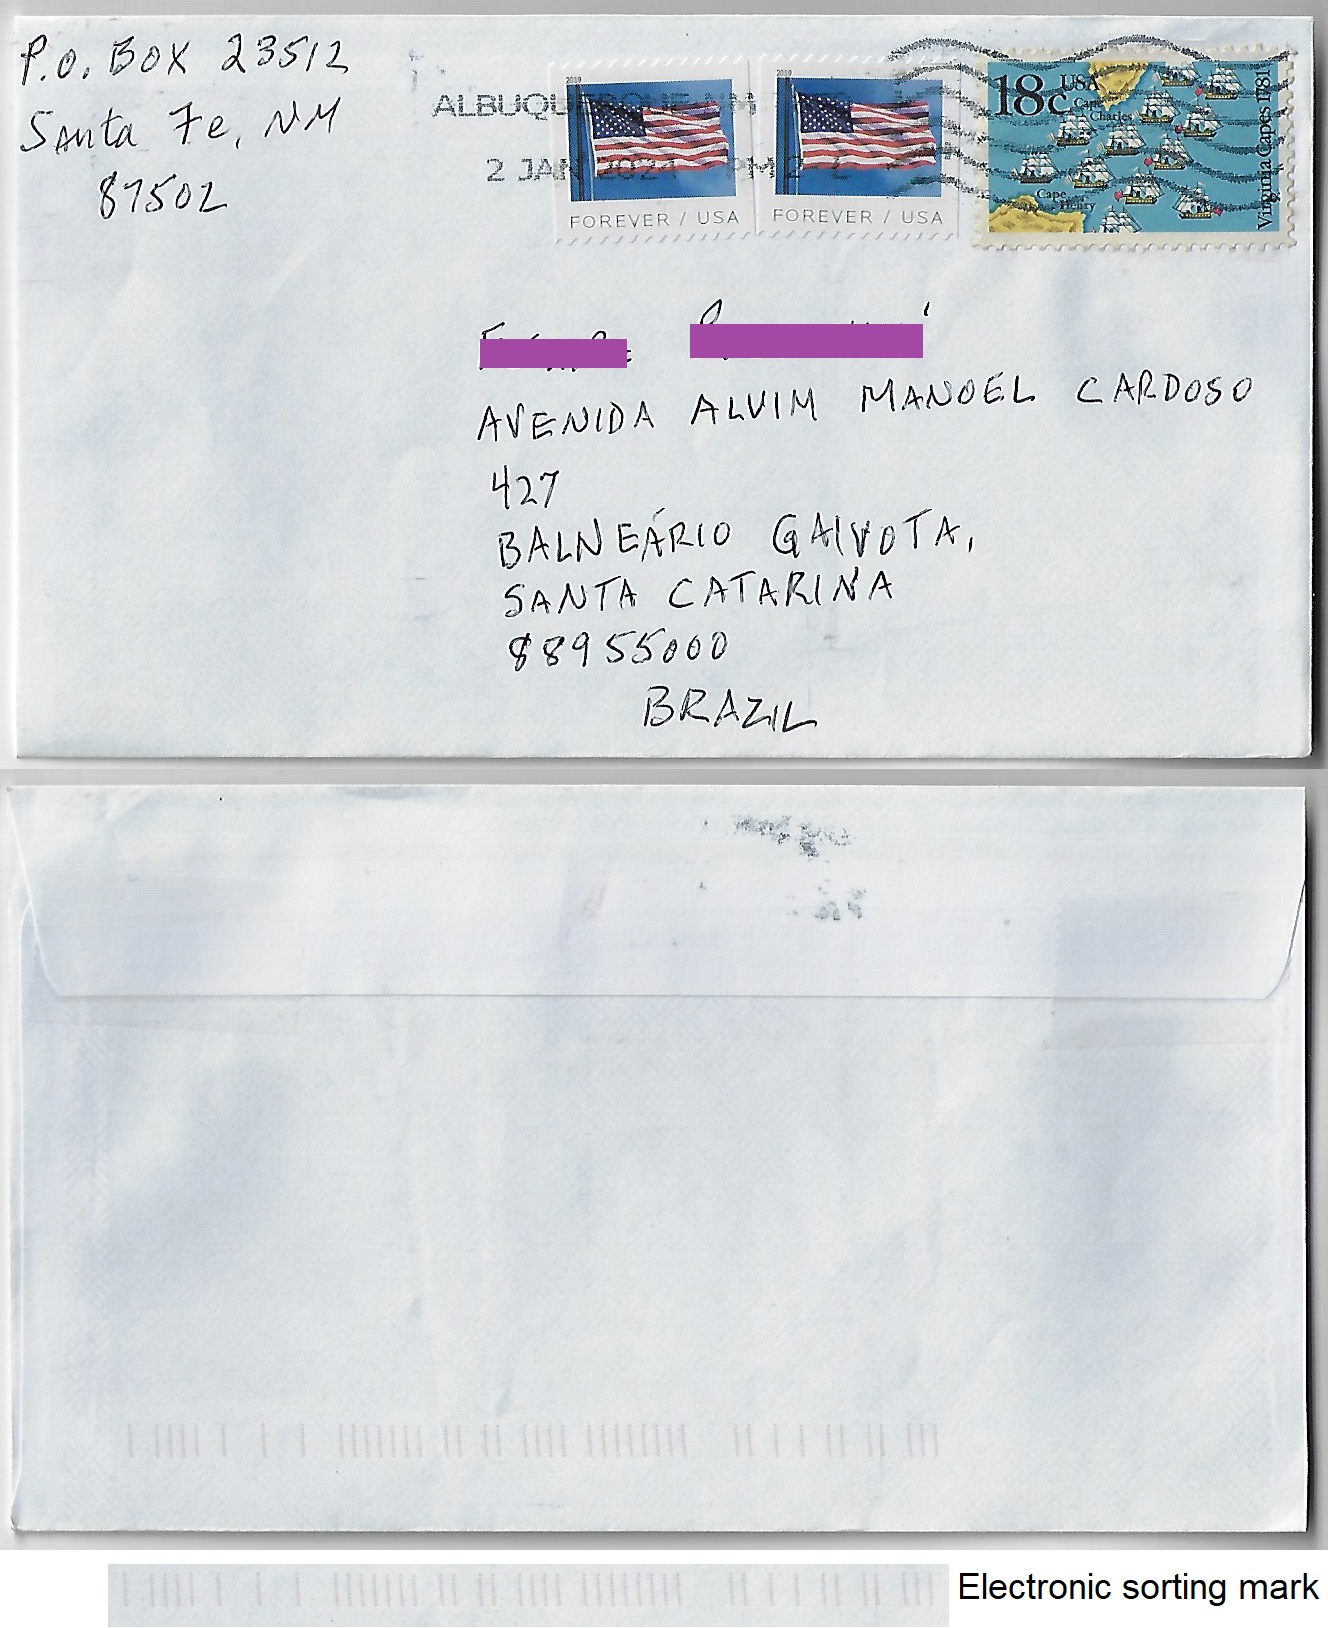 P.O. BOX 23512
Santa Fe, NM
87502
ALBUQUERQUE NM
2 JAN 2021 PM 2 L
2019
FOREVER / USA
2019
FOREVER / USA
18c USA
Cape
Charles
Cape
Henry
Virginia Capes 1781
AVENIDA ALVIM MANOEL CARDOSO
427
BALNEÁRIO GAIVOTA,
SANTA CATARINA
88955000
BRAZIL
Electronic sorting mark